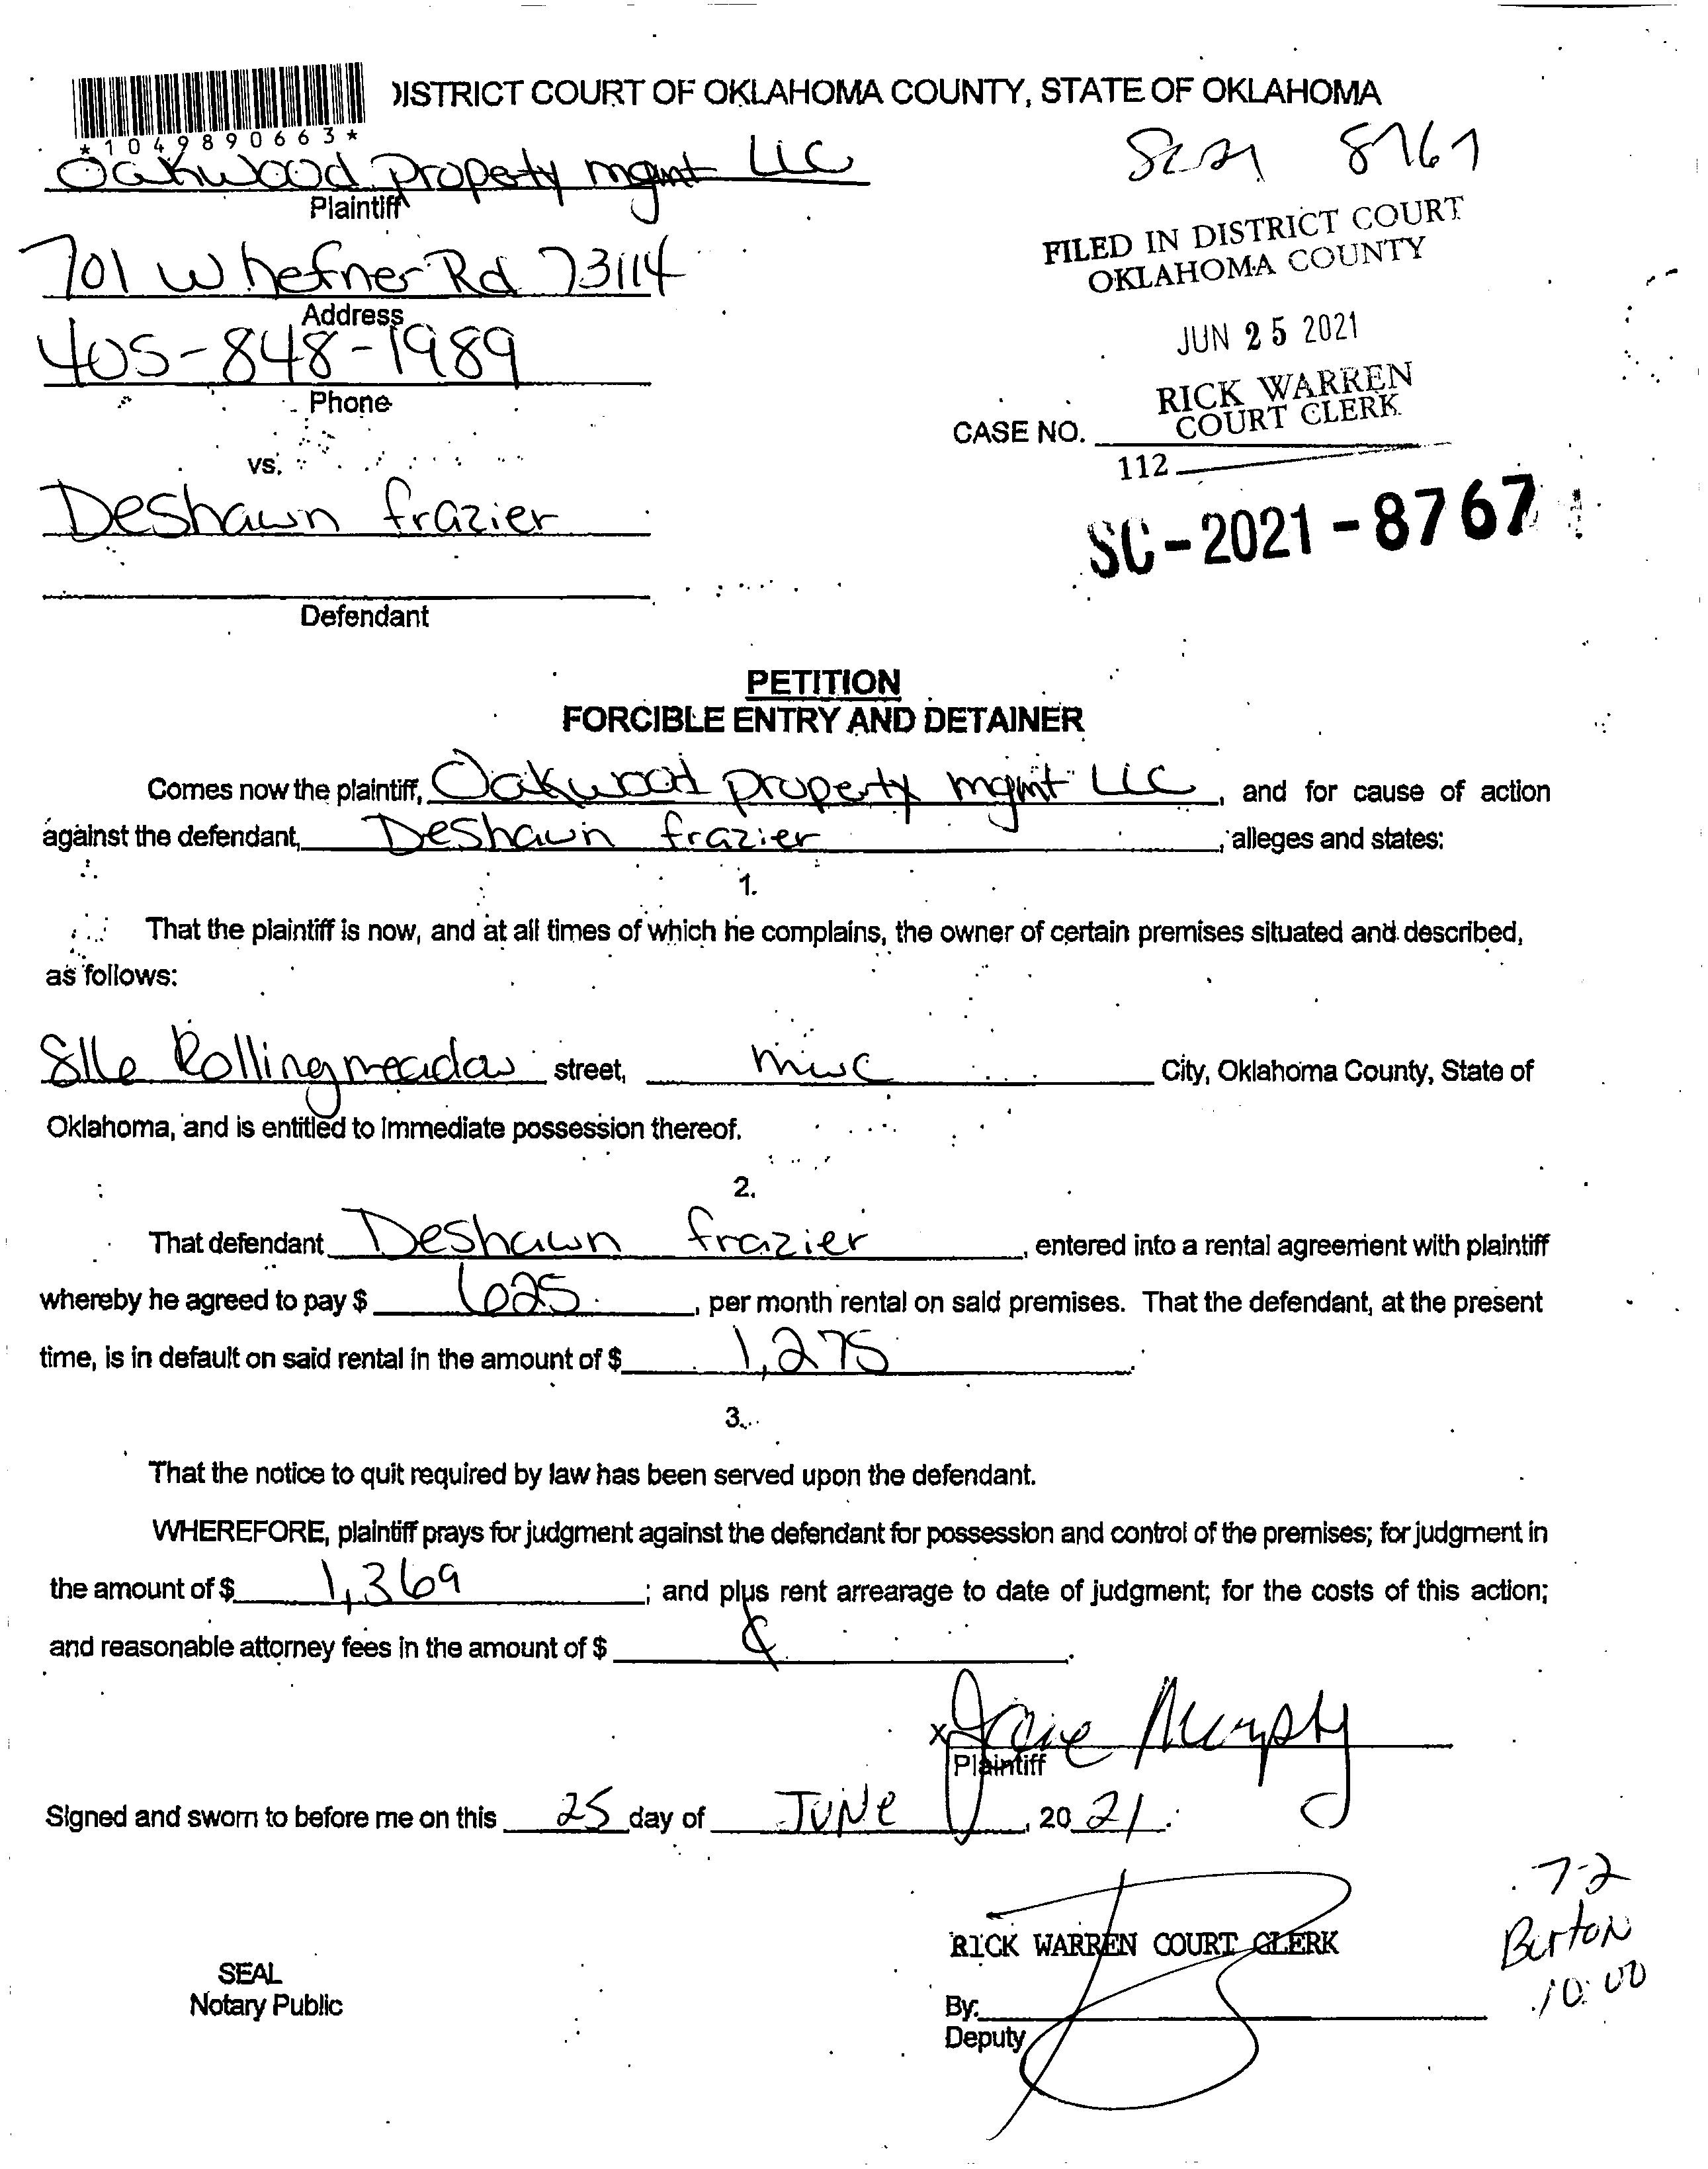 DISTRICT COURT OF OKLAHOMA COUNTY, STATE OF OKLAHOMA
*1049890663*
Oakwood property mgmt LLC
Plaintiff
SC21 8767
701 W hefner Rd 73114
Address
FILED IN DISTRICT COURT
OKLAHOMA COUNTY
405-848-1989
Phone
JUN 25 2021
RICK WARREN
COURT CLERK
CASE NO.
112
vs.
Deshawn frazier
SC-2021-8767
Defendant
PETITION
FORCIBLE ENTRY AND DETAINER
Comes now the plaintiff, Oakwood property mgmt LLC, and for cause of action
against the defendant, Deshawn frazier, alleges and states:
1.
That the plaintiff is now, and at all times of which he complains, the owner of certain premises situated and described,
as follows:
Rollingmeadow street, mwc City, Oklahoma County, State of
Oklahoma, and is entitled to immediate possession thereof.
2.
That defendant Deshawn frazier, entered into a rental agreement with plaintiff
whereby he agreed to pay $ 625, per month rental on said premises. That the defendant, at the present
time, is in default on said rental in the amount of $ 1,275.
3.
That the notice to quit required by law has been served upon the defendant.
WHEREFORE, plaintiff prays for judgment against the defendant for possession and control of the premises; for judgment in
the amount of $ 1,369; and plus rent arrearage to date of judgment; for the costs of this action;
and reasonable attorney fees in the amount of $
x Murphy
Plaintiff
Signed and sworn to before me on this 25 day of JUNe, 2021.
7-2
Burton
10:00
RICK WARREN COURT CLERK
SEAL
Notary Public
By:
Deputy